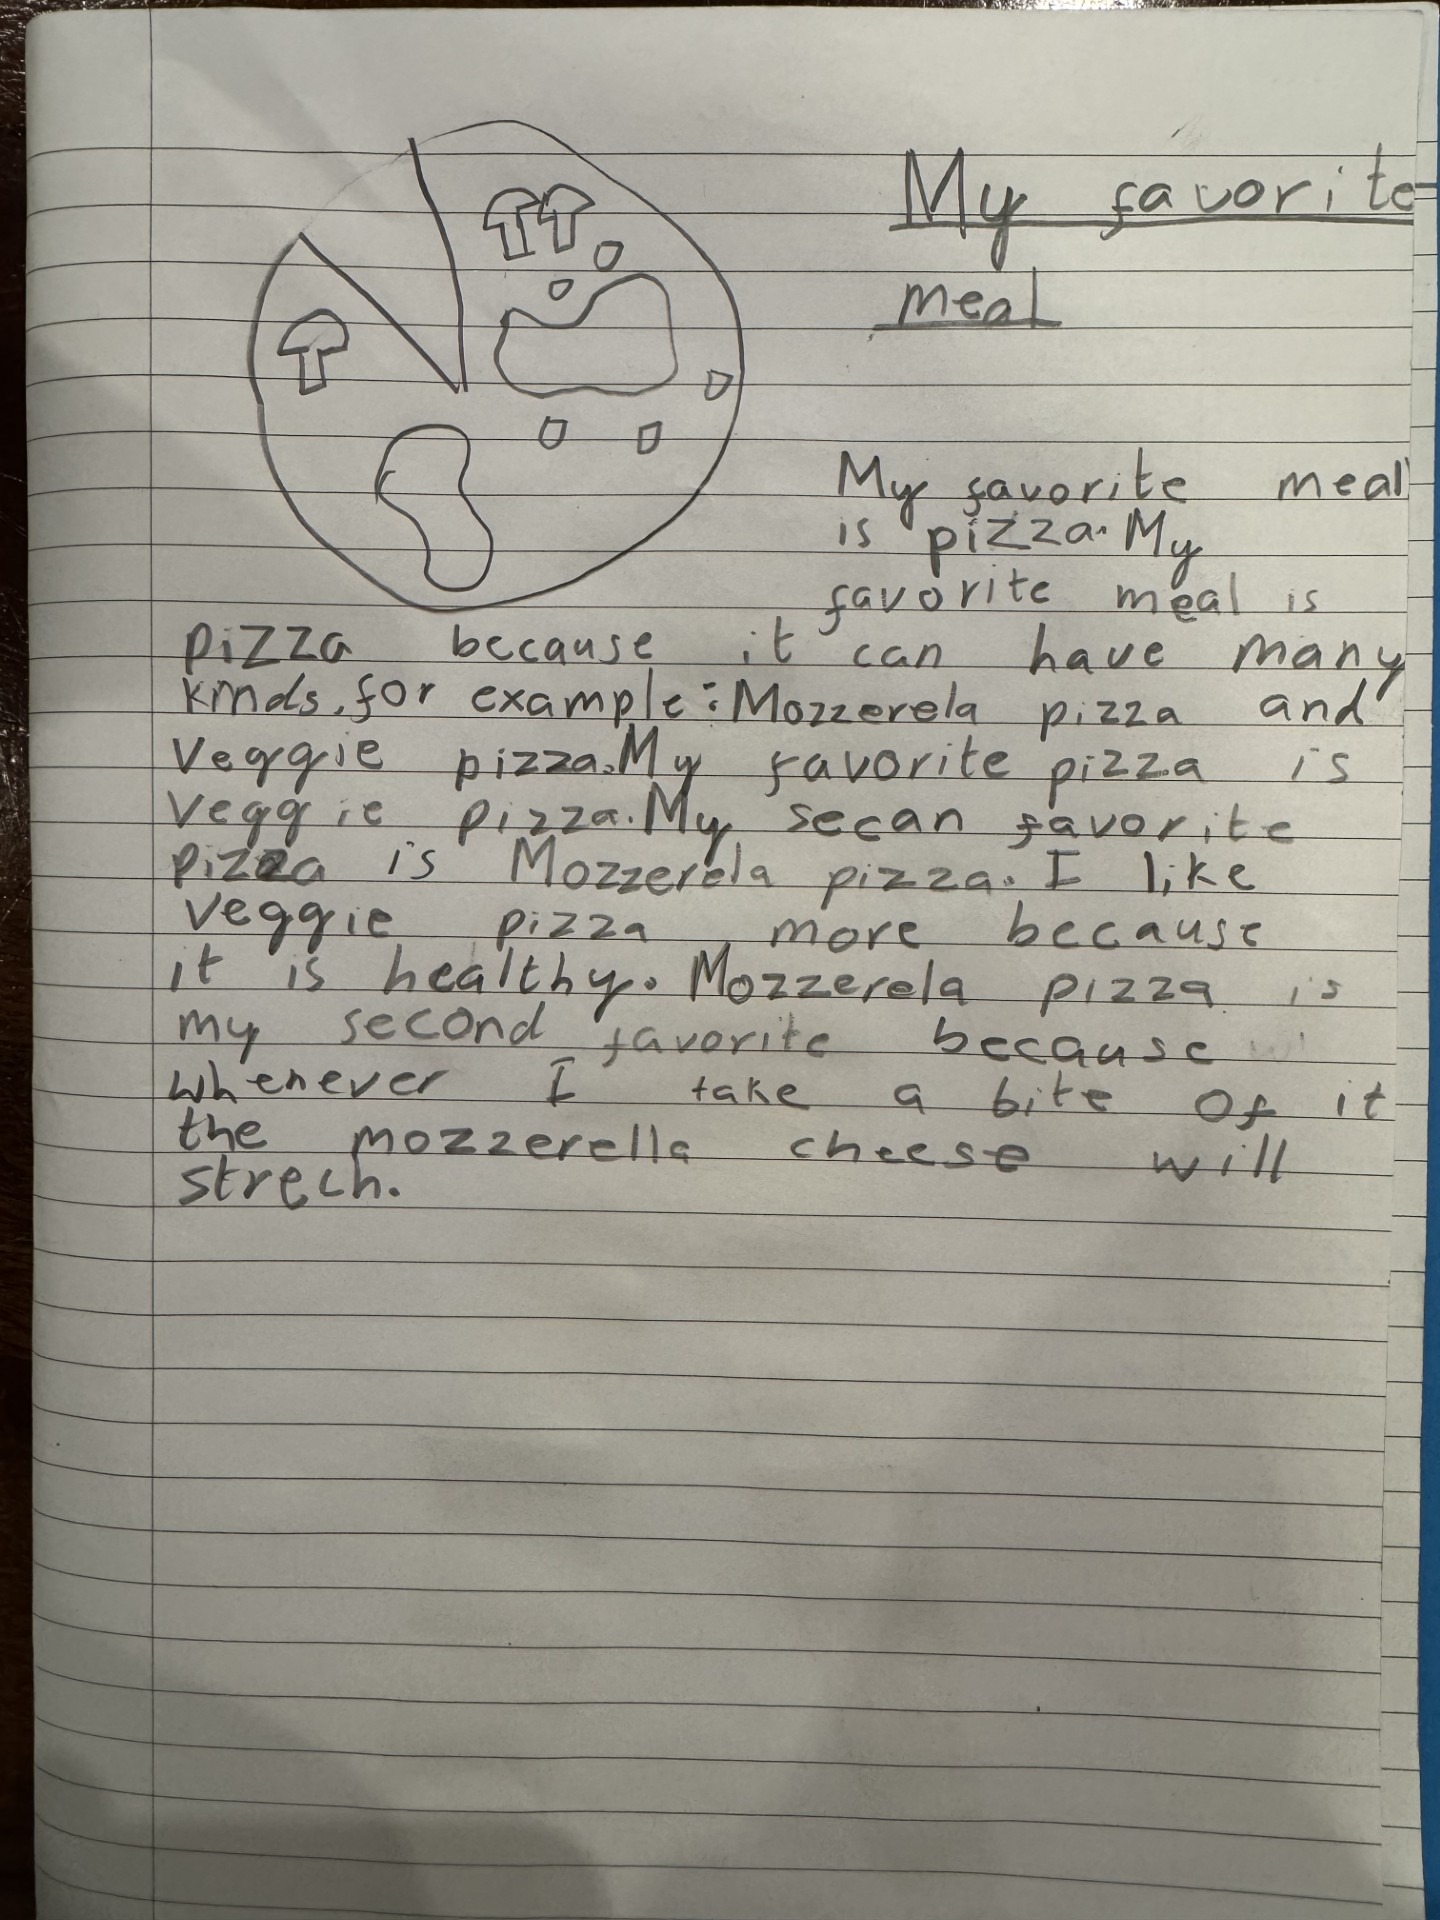 My favorite
meal
My favorite meal
is pizza. My
favorite meal is
pizza because it can have many
kinds. for example: Mozzerela pizza and
Veggie pizza. My favorite pizza is
Veggie pizza. My secan favorite
pizza is Mozzerela pizza. I like
Veggie pizza more because
it is healthy. Mozzerela pizza is
my second favorite because
whenever I take a bite of it
the mozzerella cheese will
strech.